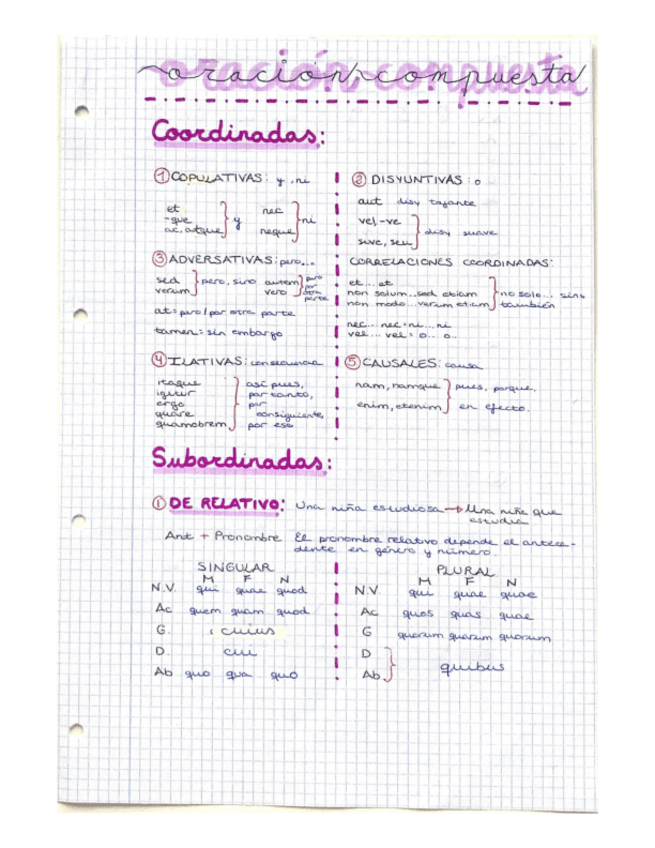 oración compuesta
Coordinadas:
① COPULATIVAS: y, ni
et
-que
ac, atque
y
nec
neque
ni
② DISYUNTIVAS: o
aut disy tajante
vel -ve
sive, seu
disy suave
③ ADVERSATIVAS: pero...
sed
verum
pero, sino
autem
vero
pero
por
otra
parte
at: pero/por otra parte
tamen: sin embargo
CORRELACIONES COORDINADAS:
et... et
non solum...sed etiam
non modo...verum etiam
no solo... sino
también
nec... nec = ni... ni
vel... vel = o... o...
④ ILATIVAS: consecuencia
itaque
igitur
ergo
quare
quamobrem
así pues,
por tanto,
por
consiguiente,
por eso
⑤ CAUSALES: causa
nam, namque
enim, etenim
pues, porque,
en efecto.
Subordinadas:
① DE RELATIVO: Una niña estudiosa → Una niña que
estudia
Ant + Pronombre El pronombre relativo depende el antece-
dente en género y número.
SINGULAR
M F N
N.V. qui quae quod
Ac quem quam quod
G. cuius
D. cui
Ab quo qua quo
PLURAL
M F N
N.V. qui quae quae
Ac quos quas quae
G quorum quarum quorum
D
Ab
quibus